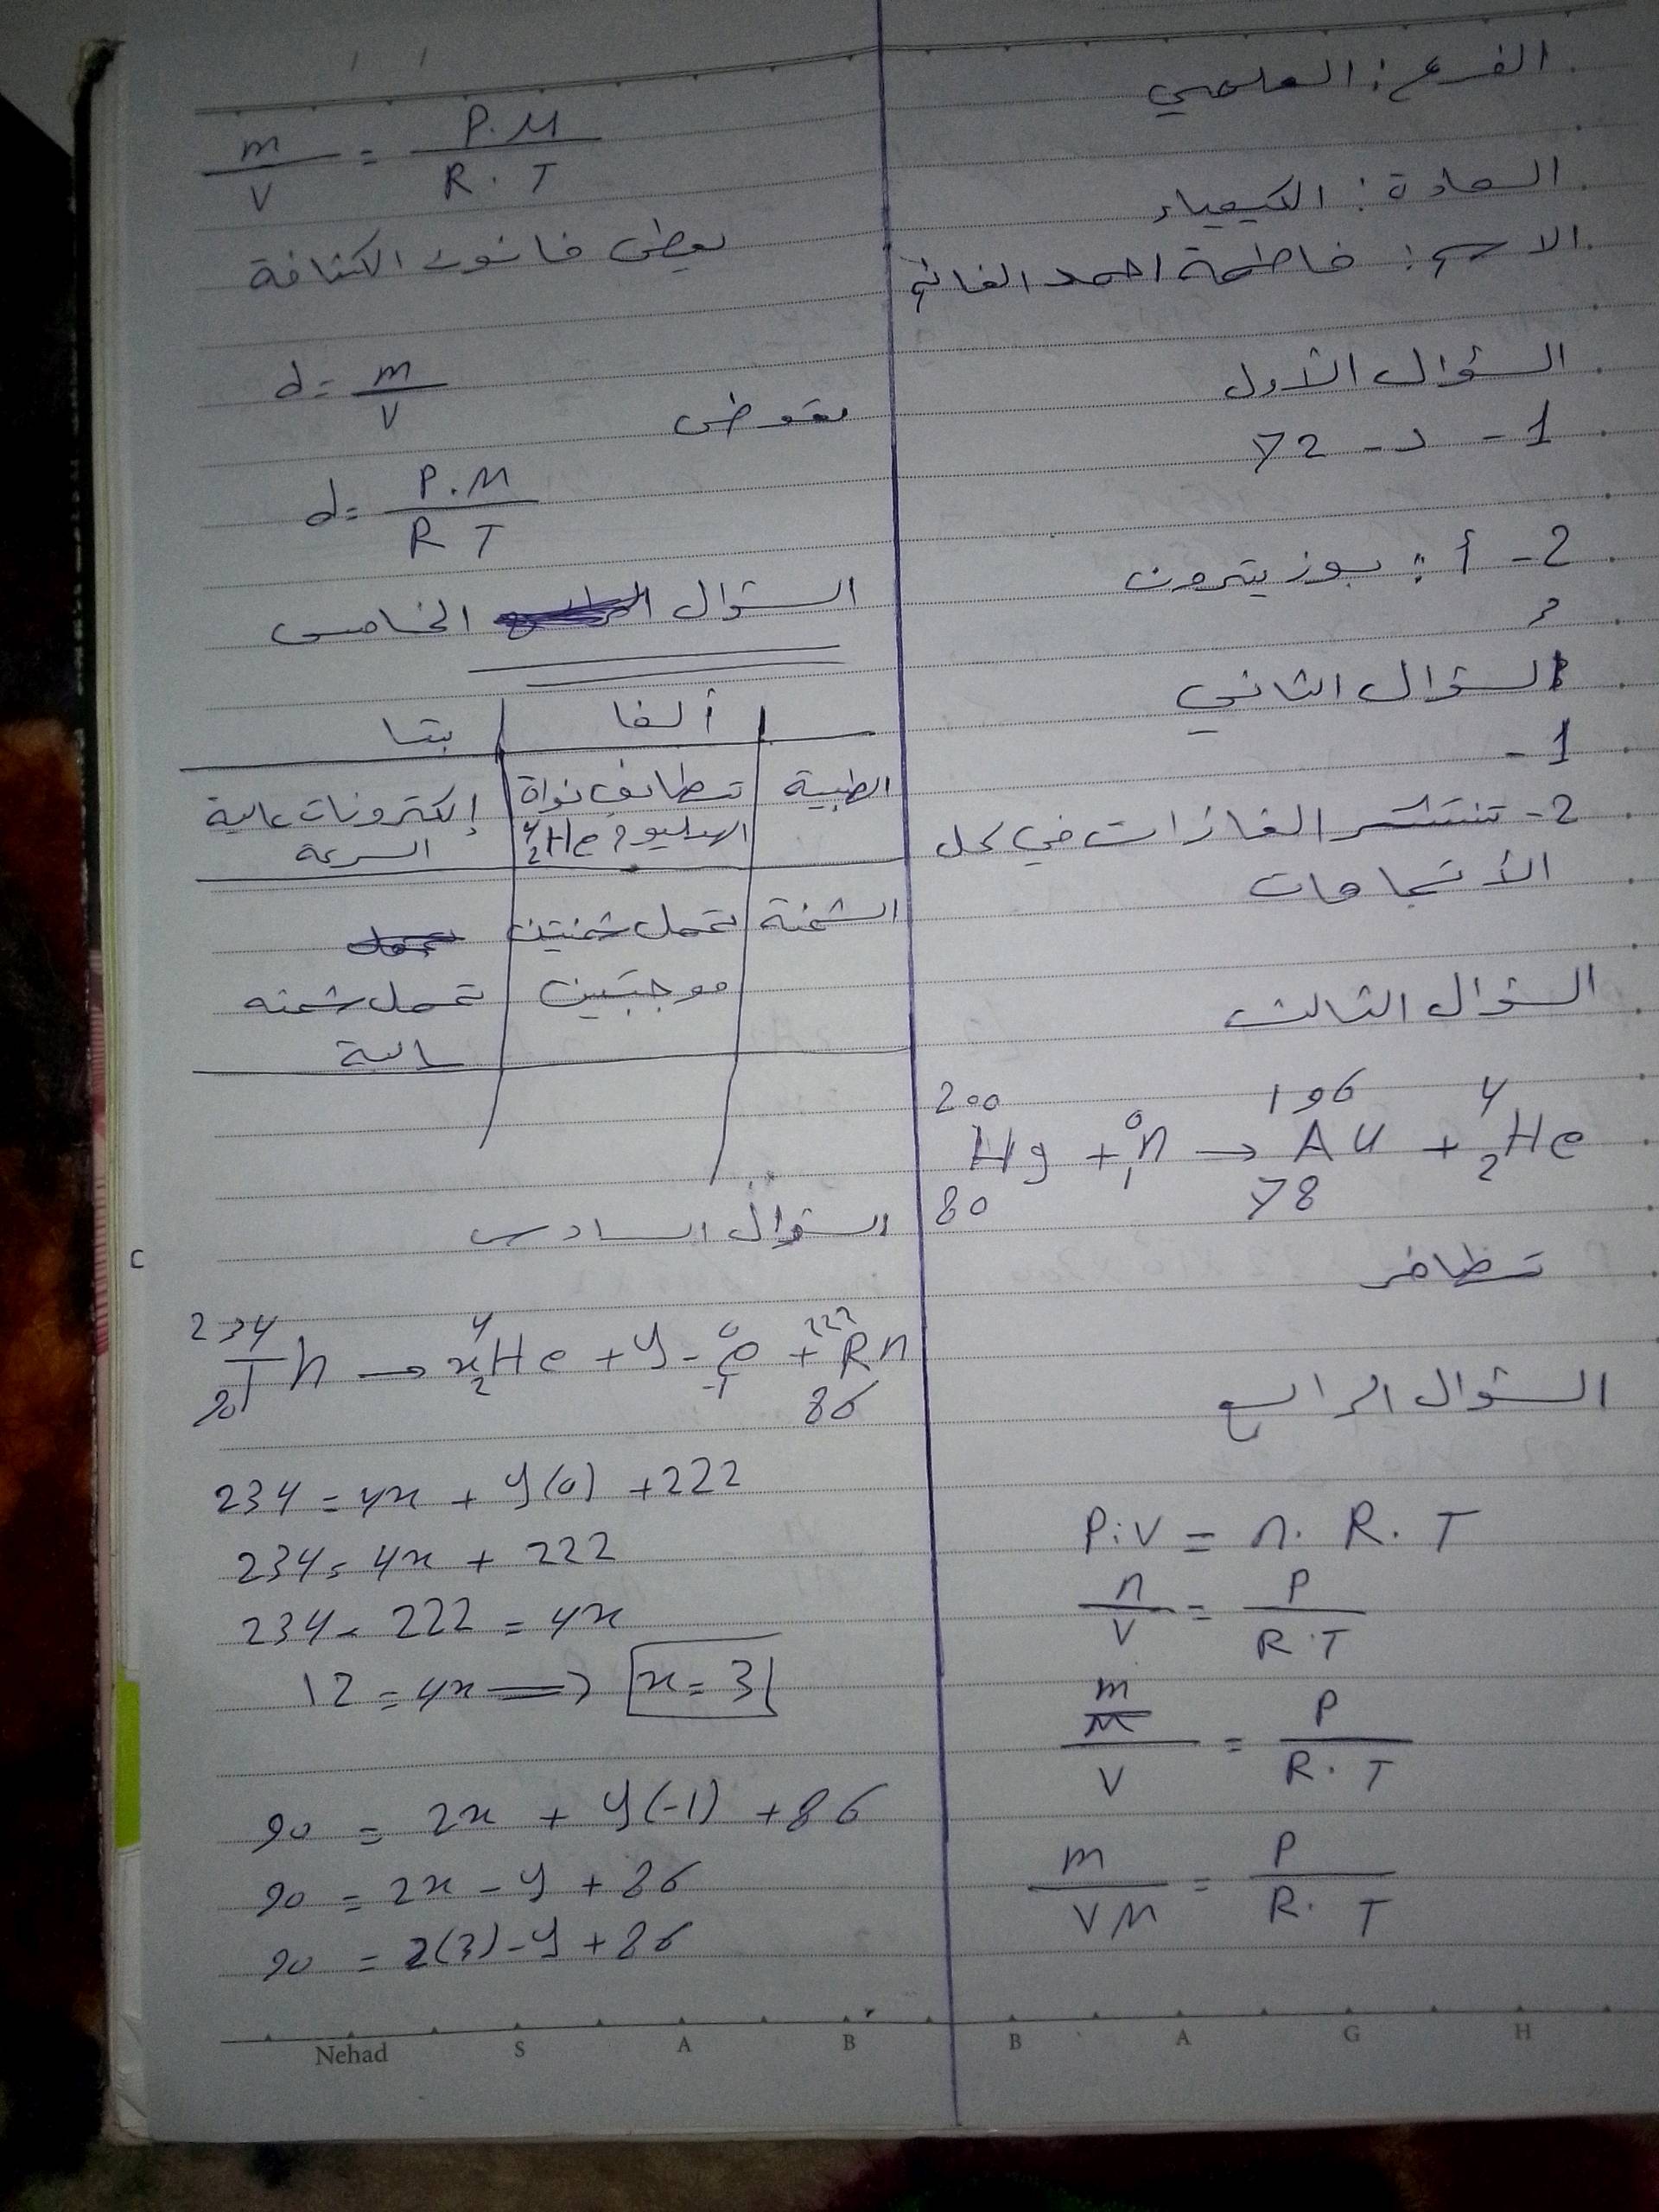 الفرع : العلمي
المادة : الكيمياء
الاسم : فاطمة احمد الغانم
السؤال الأول
1 - د - 72
2 - أ : بوزيترون
السؤال الثاني
1 -
2 - تنتشر الغازات في كل
الأتجاهات
السؤال الثالث
200 196 4
Hg + 0 1 n → Au + 2 He
80 78
تطافر
السؤال الرابع
P.V = n. R. T
n/V = P/R.T
(m/M)/V = P/R.T
m/VM = P/R. T
m/V = P.M/R.T
يعطى قانون الكثافة
d = m/V
نعوض
d = P.M/R T
السؤال الخامس
ألفا | بتا
الطبيعة | تطابق نواة الهيليوم 4 2 He | إلكترونات عالية السرعة
الشحنة | تحمل شحنتين موجبتين | تحمل شحنه سالبة
السؤال السادس
234 90 Th → x 4 2 He + y 0 -1 e + 222 86 Rn
234 = 4x + y(0) + 222
234 = 4x + 222
234 - 222 = 4x
12 = 4x ⇒ x = 3
90 = 2x + y(-1) + 86
90 = 2x - y + 86
90 = 2(3) - y + 86
Nehad S A B B A G H